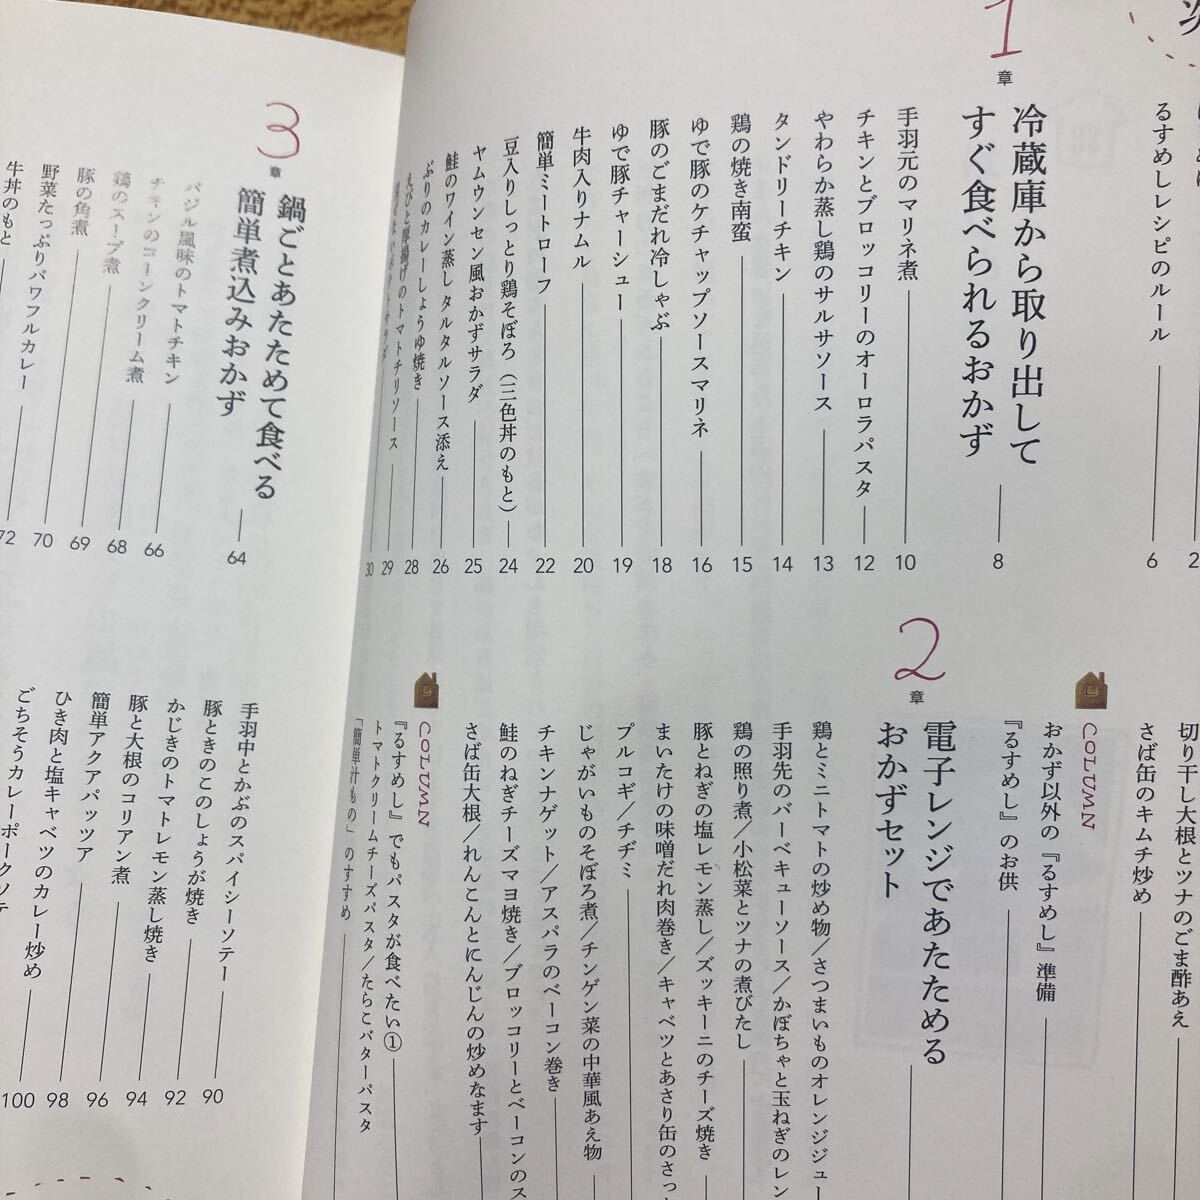 るすめしレシピのルール 6
2
1章
冷蔵庫から取り出して
すぐ食べられるおかず 8
手羽元のマリネ煮 10
チキンとブロッコリーのオーロラパスタ 12
やわらか蒸し鶏のサルサソース 13
タンドリーチキン 14
鶏の焼き南蛮 15
ゆで豚のケチャップソースマリネ 16
豚のごまだれ冷しゃぶ 18
ゆで豚チャーシュー 19
牛肉入りナムル 20
簡単ミートローフ 22
豆入りしっとり鶏そぼろ（三色丼のもと） 24
ヤムウンセン風おかずサラダ 25
鮭のワイン蒸しタルタルソース添え 26
ぶりのカレーしょうゆ焼き 28
えびと厚揚げのトマトチリソース 29
30
切り干し大根とツナのごま酢あえ
さば缶のキムチ炒め
COLUMN
おかず以外の『るすめし』準備
『るすめし』のお供
2章
電子レンジであたためる
おかずセット
鶏とミニトマトの炒め物/さつまいものオレンジジュー
手羽先のバーベキューソース/かぼちゃと玉ねぎのレン
鶏の照り煮/小松菜とツナの煮びたし
豚とねぎの塩レモン蒸し/ズッキーニのチーズ焼き
まいたけの味噌だれ肉巻き/キャベツとあさり缶のさっ
プルコギ/チヂミ
じゃがいものそぼろ煮/チンゲン菜の中華風あえ物
チキンナゲット/アスパラのベーコン巻き
鮭のねぎチーズマヨ焼き/ブロッコリーとベーコンのス
さば缶大根/れんこんとにんじんの炒めなます
COLUMN
『るすめし』でもパスタが食べたい①
トマトクリームチーズパスタ/たらこバターパスタ
「簡単汁もの」のすすめ
3章
鍋ごとあたためて食べる
簡単煮込みおかず 64
バジル風味のトマトチキン 66
チキンのコーンクリーム煮 68
鶏のスープ煮 69
豚の角煮 70
野菜たっぷりパワフルカレー 72
牛丼のもと
手羽中とかぶのスパイシーソテー 90
豚ときのこのしょうが焼き 92
かじきのトマトレモン蒸し焼き 94
豚と大根のコリアン煮 96
簡単アクアパッツア 98
ひき肉と塩キャベツのカレー炒め 100
ごちそうカレーポークソテ